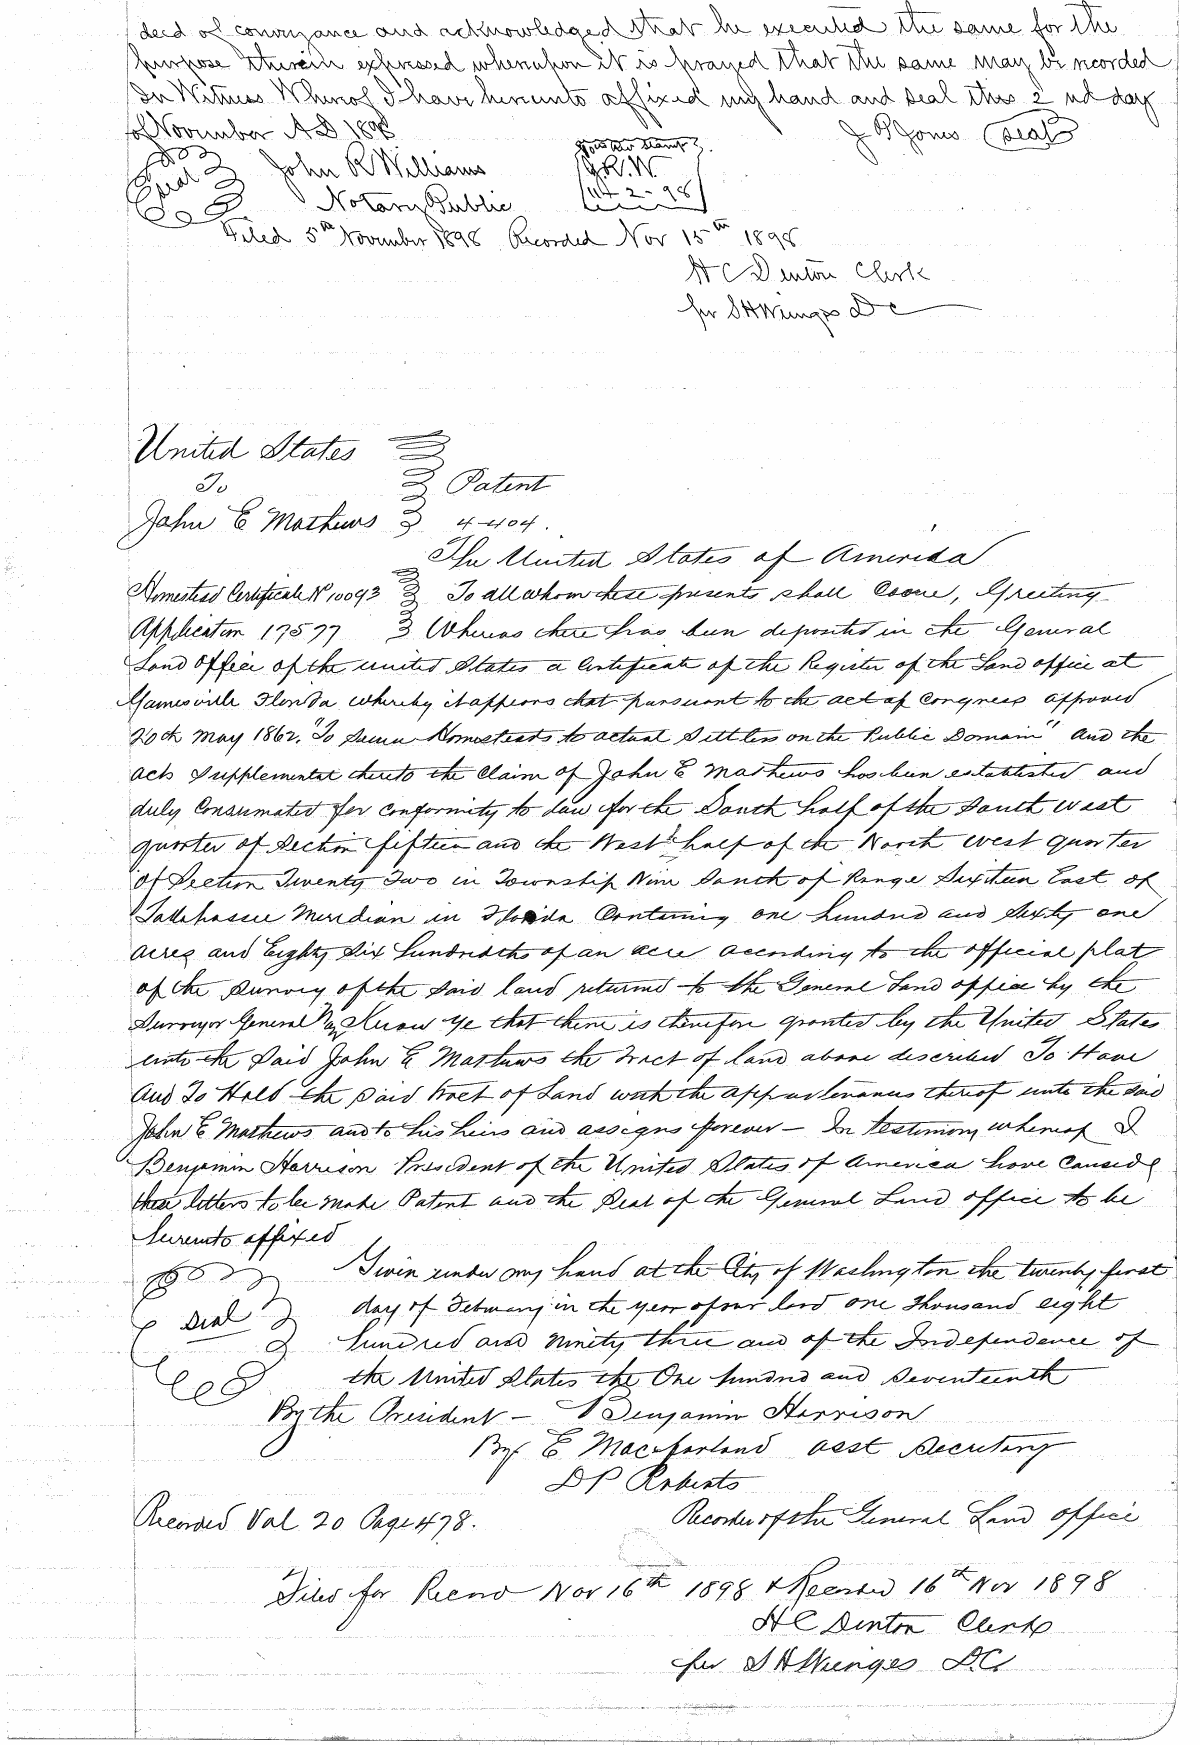 deed of conveyance and acknowledged that he executed the same for the
purpose therein expressed whereupon it is prayed that the same may be recorded
In Witness Whereof I have hereunto affixed my hand and seal this 2nd day
of November AD 1898 J P Jones (seal)
Seal John R Williams J.R.W.
Notary Public 11-2-98
Filed 5th November 1898 Recorded Nov 15th 1898
H C Denton Clerk
per S H Wienges D C
United States
To Patent
John E Mathews 4-404.
The United States of America
Homestead Certificate No 10093 To all whom these presents shall Come, Greeting
Application 17577 Whereas there has been deposited in the General
Land Office of the united States a Certificate of the Register of the Land office at
Gainesville Florida whereby it appears that pursuant to the act of Congress approved
20th May 1862. "To Secure Homesteads to actual Settlers on the Public Domain" and the
acts Supplemental thereto the Claim of John E Mathews has been established and
duly Consumated for Conformity to Law for the South half of the South west
quarter of Section fifteen and the West half of the North west quarter
of Section Twenty Two in Township Nine South of Range Sixteen East of
Tallahassee Meridian in Florida Containing one hundred and Sixty one
acres and Eighty Six hundredths of an acre according to the official plat
of the Survey of the Said land returned to the General Land office by the
Surveyor General Now Know Ye that there is therefore granted by the United States
unto the Said John E Mathews the tract of land above described To Have
And To Hold the said tract of Land with the appurtenances thereof unto the said
John E Mathews and to his heirs and assigns forever - In testimony whereof I
Benjamin Harrison President of the United States of America have Caused
these letters to be make Patent and the Seal of the General Land office to be
hereunto affixed
Given under my hand at the City of Washington the twenty first
Seal day of February in the year of our lord one thousand eight
hundred and ninety three and of the Independence of
the United States the One hundred and Seventeenth
By the President - Benjamin Harrison
By E Macfarland asst Secretary
D P Roberts
Recorded Vol 20 Page 478. Recorder of the General Land office
Filed for Record Nov 16th 1898 & Recorded 16th Nov 1898
H C Denton Clerk
per S H Wienges D.C.